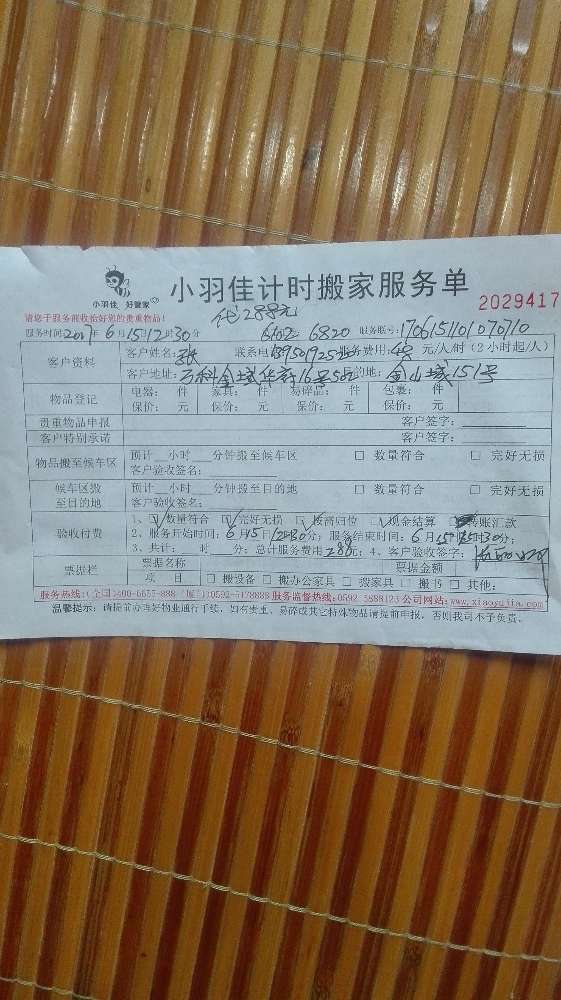 小羽佳 好管家
小羽佳计时搬家服务单
2029417
请您于服务前收拾好您的贵重物品!
288元
服务时间2017年6月15日12时30分
6102 6820
服务联号:1706151101070710
客户资料
客户姓名:
联系电
务费用:48元/人/时(2小时起/人)
客户地址:万科金域华府16号502
的地:金山城151号
物品登记
电器: 件 家具: 件 易碎品: 件 包裹: 件
保价: 元 保价: 元 保价: 元 保价: 元
贵重物品申报
客户签字:
客户特别承诺
客户签字:
物品搬至候车区
预计 小时 分钟搬至候车区 □ 数量符合 □ 完好无损
客户验收签名:
候车区搬至目的地
预计 小时 分钟搬至目的地 □ 数量符合 □ 完好无损
客户验收签名:
验收付费
1、☑数量符合 ☑完好无损 ☑按需归位 ☑现金结算 转账汇款
2、服务开始时间:6月15日12时30分;服务结束时间:6月15日15时30分;
3、共计: 时 分;总计服务费用288元;4、客户验收签字:
票据栏
票据名称
票据金额
项 目 □ 搬设备 □ 搬办公家具 □ 搬家具 □ 搬书 □ 其他:
服务热线:(全国)400-6655-888 (厦门)0592-5178888 服务监督热线:0592-5888123 公司网站:www.xiaoyujia.com
温馨提示:请提前办理好物业通行手续,如有贵重、易碎或其它特殊物品请提前申报,否则我司不予负责。